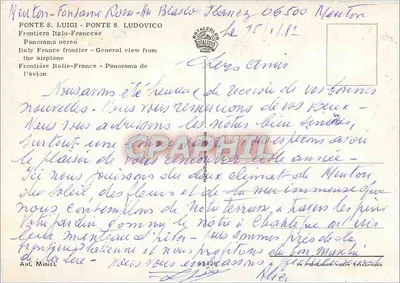 Menton - Fontana Rosa - Av Blasco Ibanez 06500 Menton
le 15/1/82
PONTE S. LUIGI - PONTE S. LUDOVICO
Frontiera Italo-Francese
Panorama aereo
Italy France frontier - General view from
the airplane
Frontière Italie-France - Panorama de
l'avion
ROTALCOLOR
Chers amis
Nous avons été heureux de recevoir de vos bonnes
nouvelles. Nous vous remercions de vos vœux -
Nous vous adressons les nôtres bien sincères,
surtout une avoir
le plaisir de vous cette année -
Ici nous jouissons du doux climat de Menton,
du soleil, des fleurs et de la mer immense que
nous contemplons de notre terrasse, à travers les pins
Votre jardin comme le nôtre à a mis
leur manteau d'hiver - Nous sommes près de la
frontière italienne et nous profitons du bon marché
de la vie - Nous vous embrassons
Alice
Aut. Minist.
GRAPHIL